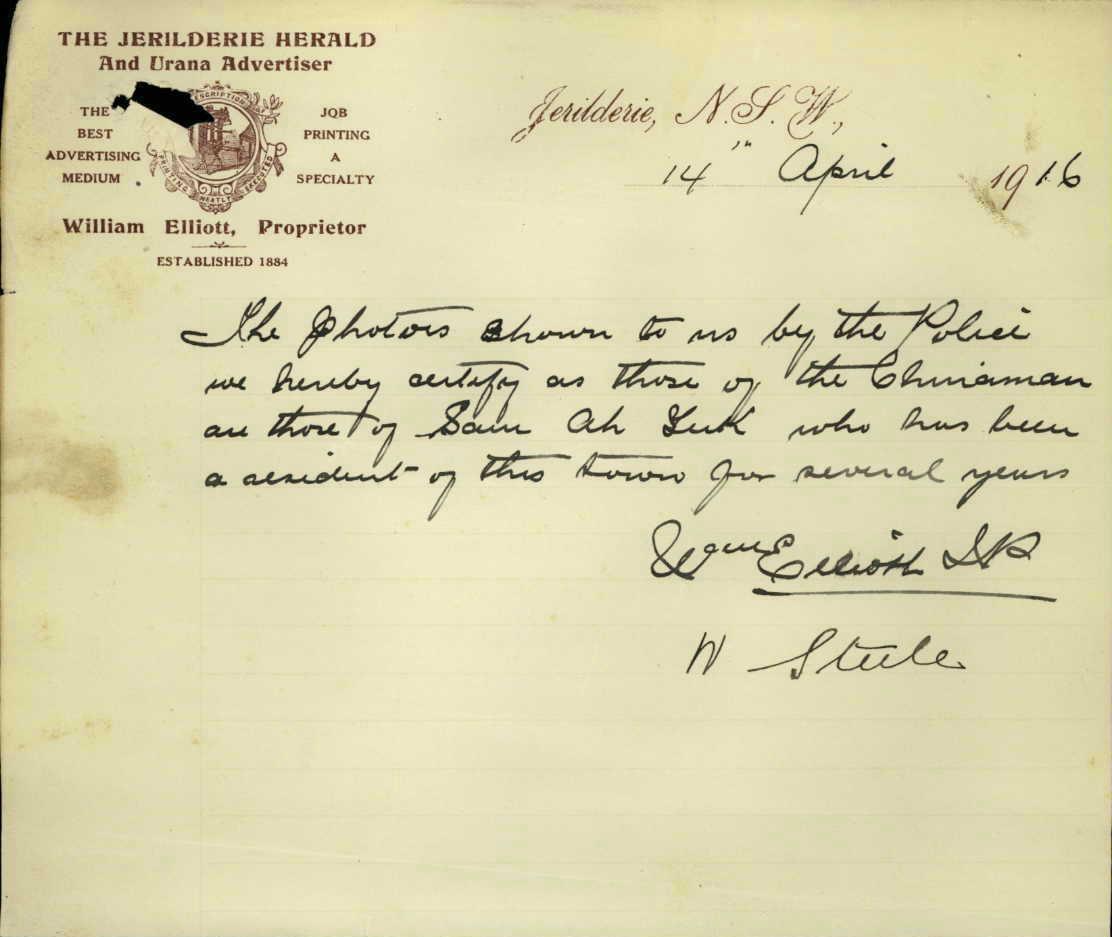 THE JERILDERIE HERALD
And Urana Advertiser
THE
BEST
ADVERTISING
MEDIUM
PRINTING
NEATLY
EXECUTED
JOB
PRINTING
A
SPECIALTY
William Elliott, Proprietor
ESTABLISHED 1884
Jerilderie, N.S.W.,
14th April 1916
The photos shown to us by the Police
we hereby certify as those of the Chinaman
are those of Sam Ah Luk who has been
a resident of this town for several years
Wam Elliott JP
W Steele